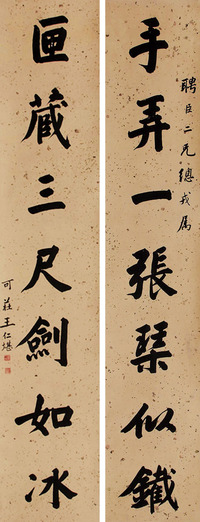 聘臣二兄總戎属
手弄一張琹似鐵
匣藏三尺劍如冰
可莊王仁堪